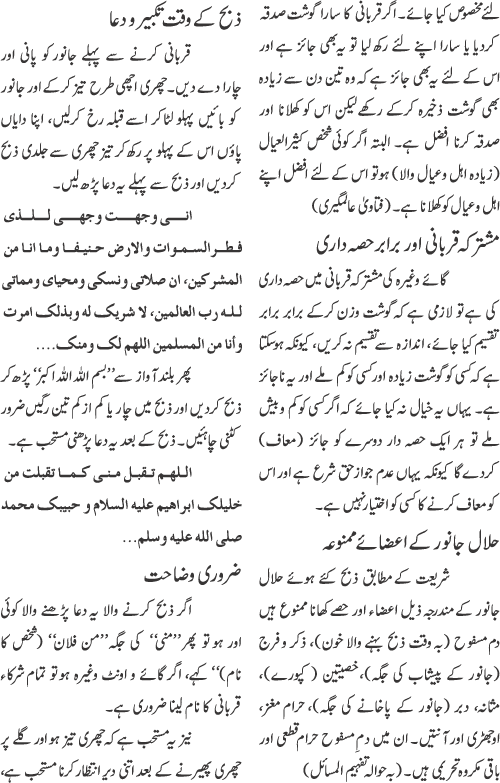 لئے مخصوص کیا جائے۔ اگر قربانی کا سارا گوشت صدقہ
کردیا یا سارا اپنے لئے رکھ لیا تو یہ بھی جائز ہے اور
اس کے لئے یہ بھی جائز ہے کہ وہ تین دن سے زیادہ
بھی گوشت ذخیرہ کرکے رکھے لیکن اس کو کھلانا اور
صدقہ کرنا افضل ہے۔ البتہ اگر کوئی شخص کثیرالعیال
(زیادہ اہل وعیال والا) ہو تو اس کے لئے افضل اپنے
اہل وعیال کو کھلانا ہے۔ (فتاویٰ عالمگیری)
مشترکہ قربانی اور برابر حصہ داری
گائے وغیرہ کی مشترکہ قربانی میں حصہ داری
کی ہے تو لازمی ہے کہ گوشت وزن کرکے برابر برابر
تقسیم کیا جائے، اندازہ سے تقسیم نہ کریں، کیونکہ ہوسکتا
ہے کہ کسی کو گوشت زیادہ اور کسی کو کم ملے اور یہ ناجائز
ہے۔ یہاں یہ خیال نہ کیا جائے کہ اگر کسی کو کم وبیش
ملے تو ہر ایک حصہ دار دوسرے کو جائز (معاف)
کردے گا کیونکہ یہاں عدم جواز حق شرع ہے اور اس
کو معاف کرنے کا کسی کو اختیار نہیں ہے۔
حلال جانور کے اعضائے ممنوعہ
شریعت کے مطابق ذبح کئے ہوئے حلال
جانور کے مندرجہ ذیل اعضاء اور حصے کھانا ممنوع ہیں
دم مسفوح (بہ وقت ذبح بہنے والا خون)، ذکر و فرج
(جانور کے پیشاب کی جگہ)، خصیتین (کپورے)،
مثانہ، دبر (جانور کے پاخانے کی جگہ)، حرام مغز،
اوجھڑی اور آنتیں۔ ان میں دم مسفوح حرام قطعی اور
باقی مکروہ تحریمی ہیں۔ (بہ حوالہ تفہیم المسائل)
ذبح کے وقت تکبیر و دعا
قربانی کرنے سے پہلے جانور کو پانی اور
چارا دے دیں۔ چھری اچھی طرح تیز کرکے اور جانور
کو بائیں پہلو لٹا کر اسے قبلہ رخ کرلیں، اپنا دایاں
پاؤں اس کے پہلو پر رکھ کر تیز چھری سے جلدی ذبح
کردیں اور ذبح سے پہلے یہ دعا پڑھ لیں۔
انی وجهت وجهی للذی
فطر السموات والارض حنیفا وما انا من
المشرکین، ان صلاتی ونسکی ومحیای ومماتی
لله رب العالمین، لا شریک له وبذلک امرت
وأنا من المسلمین اللهم لک ومنک....
پھر بلند آواز سے ”بسم اللہ اللہ اکبر“ پڑھ کر
ذبح کردیں اور ذبح میں چار یا کم از کم تین رگیں ضرور
کٹنی چاہئیں۔ ذبح کے بعد یہ دعا پڑھنی مستحب ہے۔
اللهم تقبل منی کما تقبلت من
خلیلک ابراهیم علیه السلام و حبیبک محمد
صلی الله علیه وسلم...
ضروری وضاحت
اگر ذبح کرنے والا یہ دعا پڑھنے والا کوئی
اور ہو تو پھر ”منی“ کی جگہ ”من فلان“ (شخص کا
نام)“ کہے، اگر گائے و اونٹ وغیرہ ہو تو تمام شرکاء
قربانی کا نام لینا ضروری ہے۔
نیز یہ مستحب ہے کہ چھری تیز ہو اور گلے پر
چھری پھیرنے کے بعد اتنی دیر انتظار کرنا مستحب ہے،